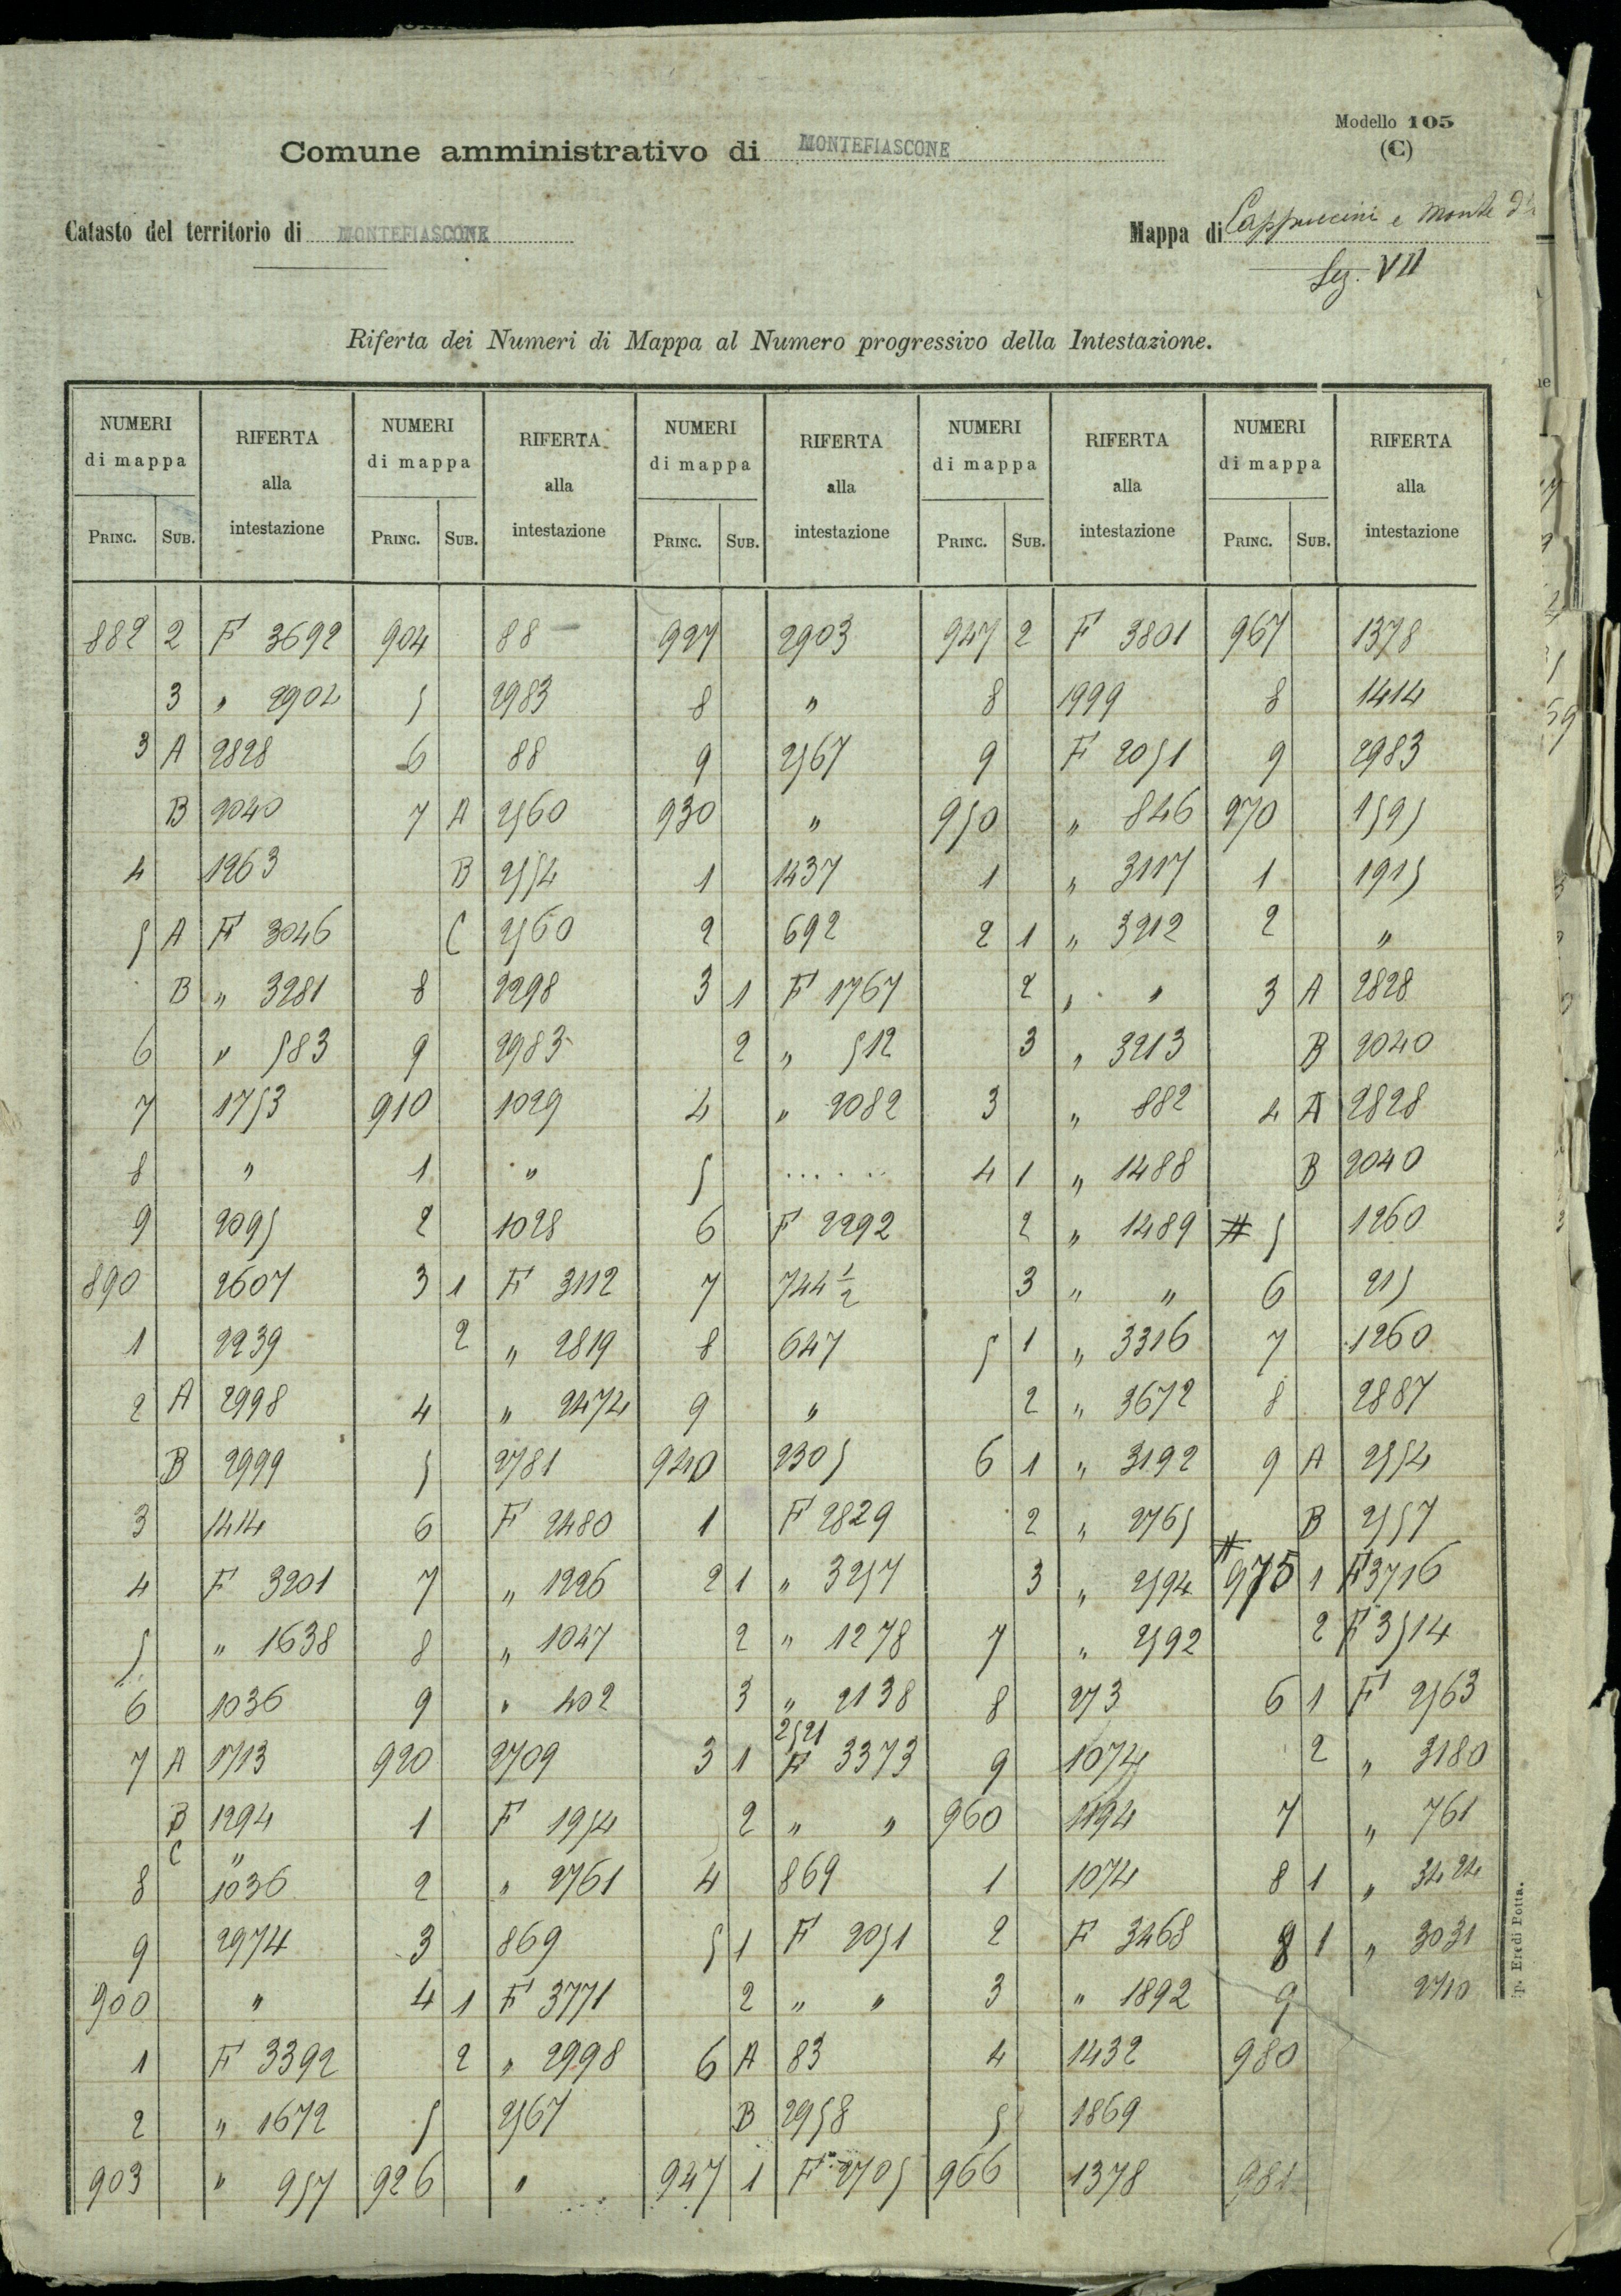 Modello 105
(C)
Comune amministrativo di MONTEFIASCONE
Catasto del territorio di MONTEFIASCONE
Mappa di Cappuccini e Monte d'
Sez. VII
Riferta dei Numeri di Mappa al Numero progressivo della Intestazione.
NUMERI di mappa RIFERTA alla intestazione NUMERI di mappa RIFERTA alla intestazione NUMERI di mappa RIFERTA alla intestazione NUMERI di mappa RIFERTA alla intestazione NUMERI di mappa RIFERTA alla intestazione
PRINC. SUB. PRINC. SUB. PRINC. SUB. PRINC. SUB. PRINC. SUB.
882 2 F 3692 904 88 927 2903 947 2 F 3801 967 1378
3 " 2902 5 2983 8 " 8 1999 8 1414
3 A 2828 6 88 9 2567 9 F 2051 9 2983
B 2040 7 A 2560 930 " 950 " 846 970 1595
4 1263 B 2554 1 1437 1 " 3117 1 1915
5 A F 3046 C 2560 2 692 2 1 " 3212 2 "
B " 3281 8 2298 3 1 F 1767 2 " " 3 A 2828
6 " 583 9 2983 2 " 512 3 " 3213 B 2040
7 1753 910 1029 4 " 2082 3 " 882 4 A 2828
8 " 1 " 5 ...... 4 1 " 1488 B 2040
9 2095 2 1028 6 F 2292 2 " 1489 # 5 1260
890 2607 3 1 F 3112 7 744 1/2 3 " " 6 215
1 2239 2 " 2819 8 647 5 1 " 3316 7 1260
2 A 2998 4 " 2474 9 " 2 " 3672 8 2887
B 2999 5 2781 940 2305 6 1 " 3192 9 A 2554
3 144 6 F 2480 1 F 2829 2 " 2765 B 2557
4 F 3201 7 " 1226 2 1 " 3257 3 " 2594 # 975 1 F 3716
5 " 1638 8 " 1047 2 " 1278 7 " 2592 2 F 3514
6 1036 9 " 402 3 " 2138 8 273 6 1 F 2563
7 A 1713 920 2709 3 1 2521 F 3373 9 1074 2 " 3180
B 1294 1 F 1954 2 " " 960 1194 7 " 761
C "
8 1036 2 " 2761 4 869 1 1074 8 1 " 3424
9 2974 3 869 5 1 F 2051 2 F 3468 8 1 " 3031
900 " 4 1 F 3771 2 " " 3 " 1892 9 2710
1 F 3392 2 " 2998 6 A 83 4 1432 980
2 " 1672 5 2567 B 2958 5 1869
903 " 957 926 " 947 1 F 2705 966 1378 981
Eredi Potta.